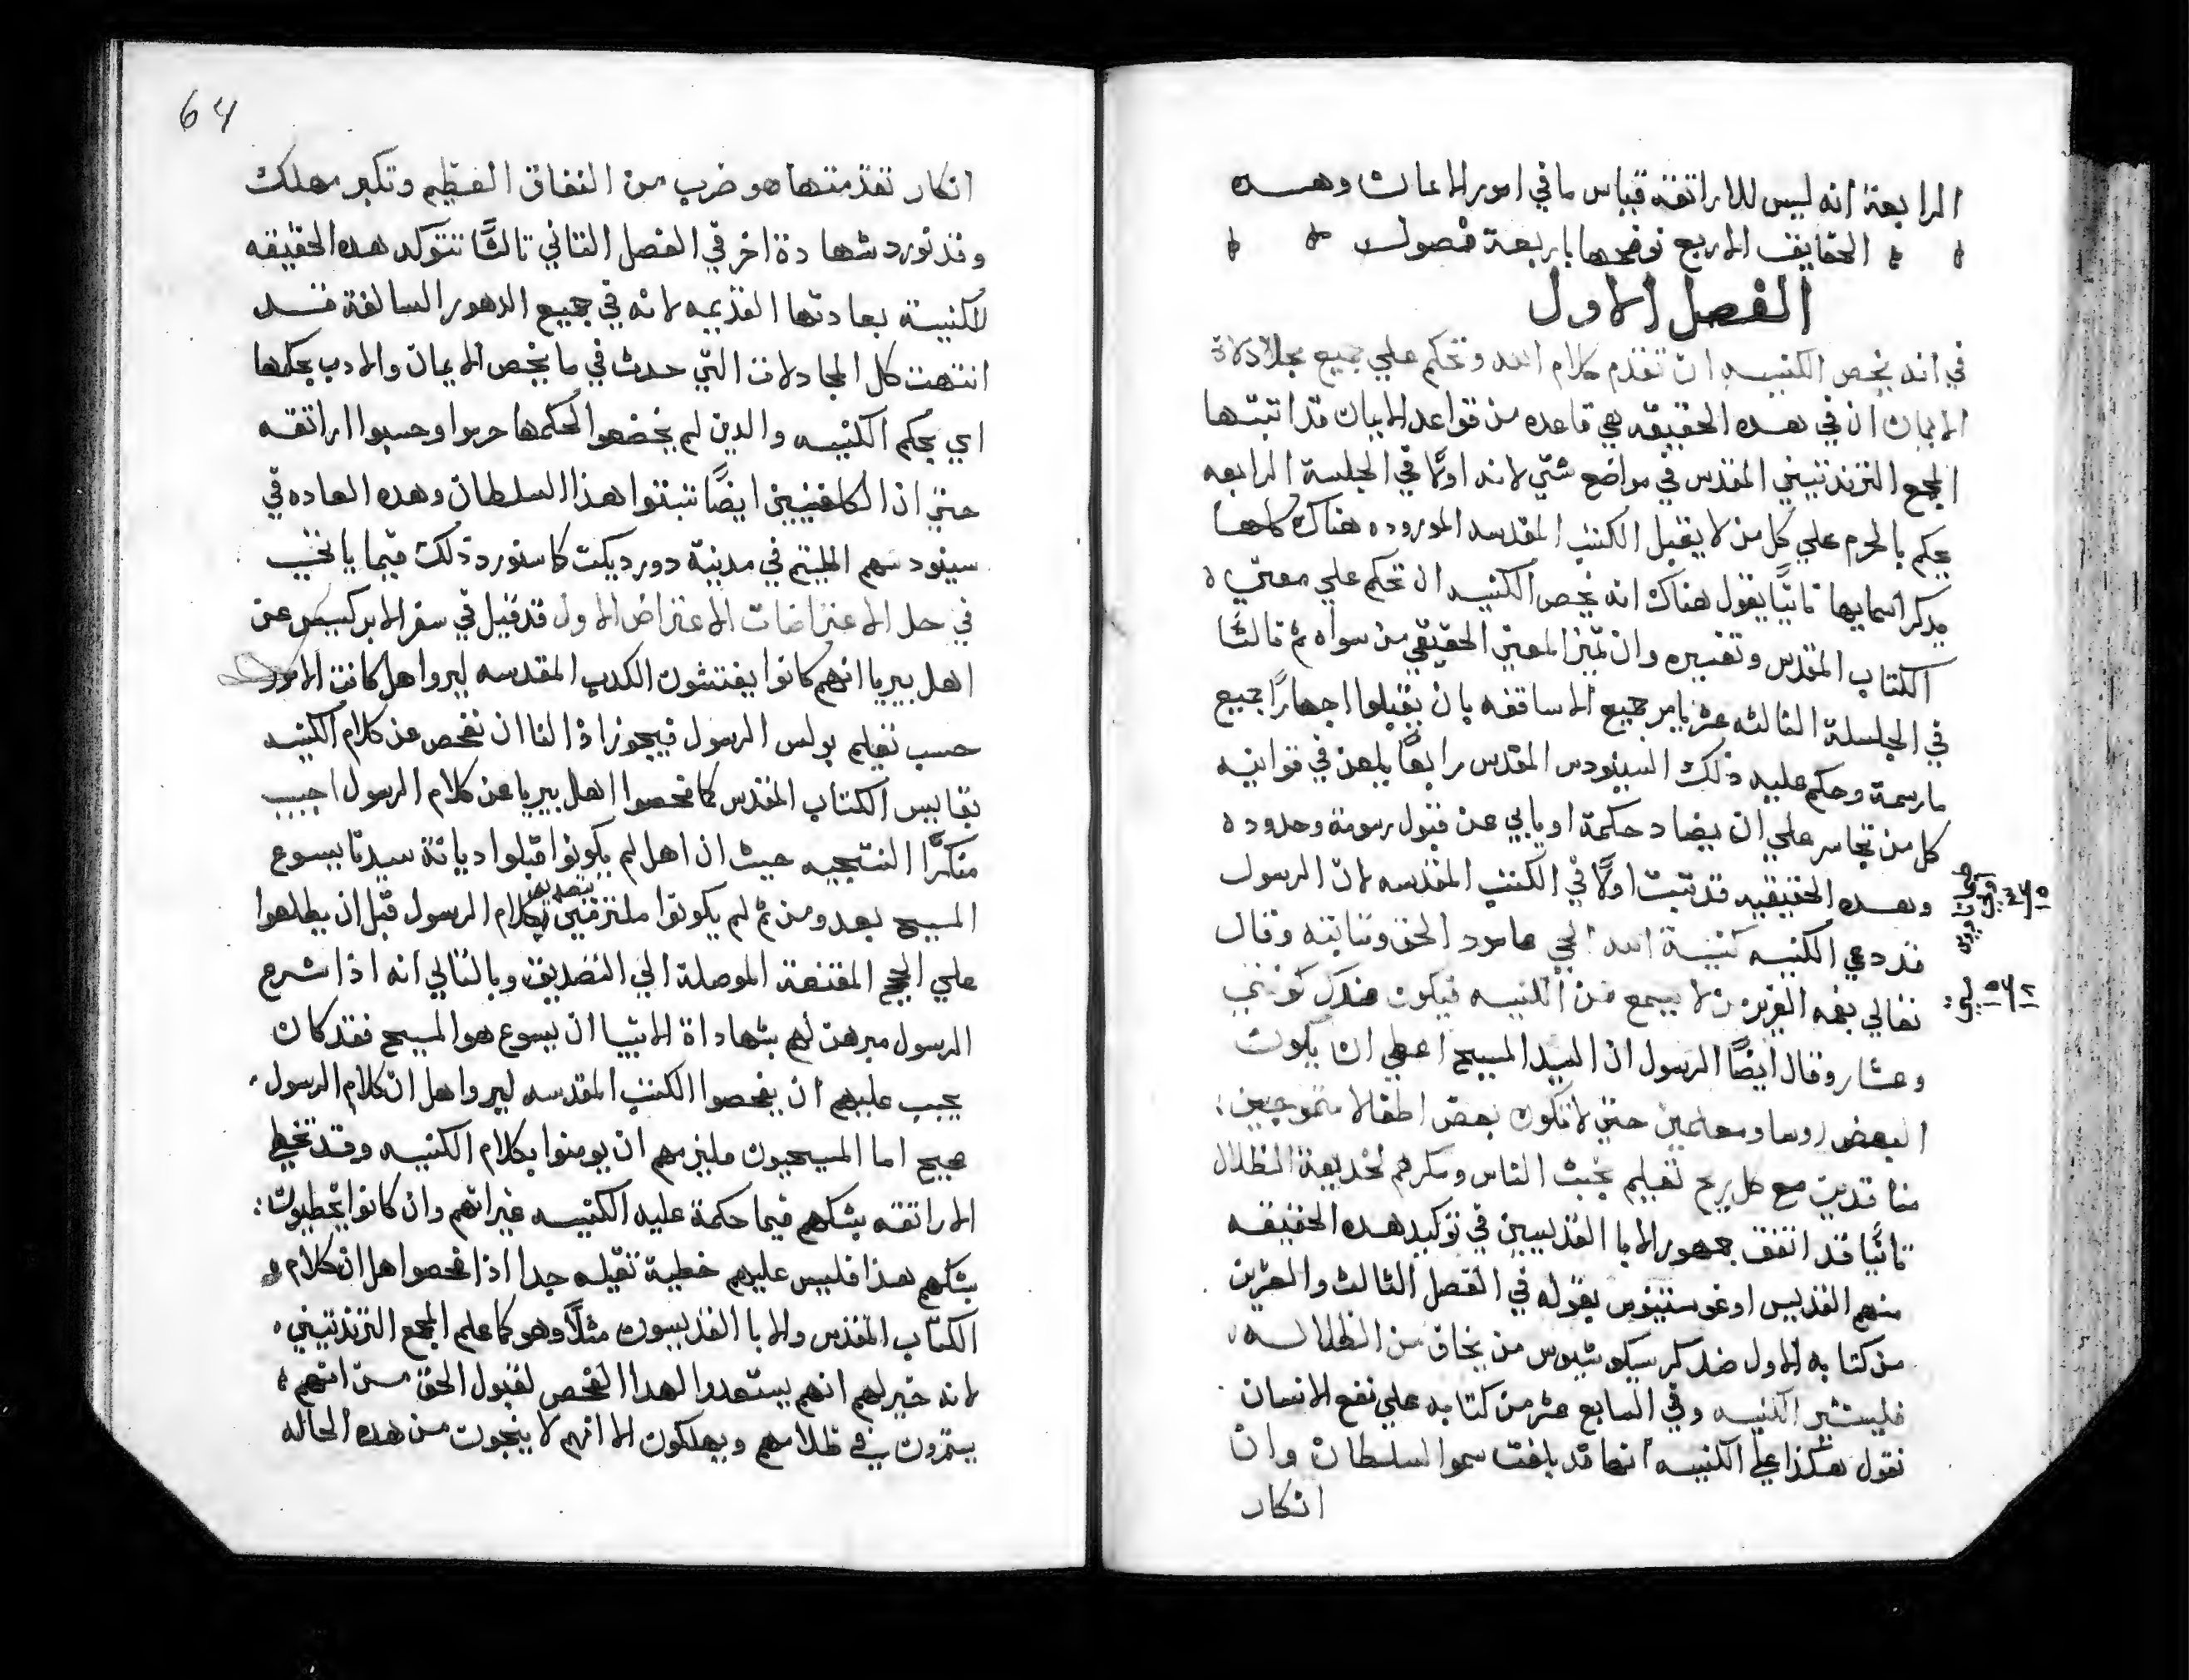 الرابعة انه ليس للاراتقه قياس ما في امور الامانت وهده
الحقايق الاربع نوضحها باربعة فصول
الفصل الاول
في انه يخص الكنيسه ان تقدم كلام الله وتحكم علي جميع مجلادلاة
الايمان ان في هده الحقيقه هي قاعده من قواعد الايمان قد اتبتها
المجمع التريدنتيني المقدس في مواضع شتي لانه اولاً في الجلسة الرابعه
يحكم بالحرم علي كل من لا يقبل الكتب المقدسه الموروده هناك كلها
يدكر اسمايها تانيًا يقول هناك انه يخص الكنيسه ان تحكم علي معني
الكتاب المقدس وتفسيره وان تميز المعني الحقيقي من سواه ثم تالتًا
في الجلسلة التالثه عشر يامر جميع الاساقفه بان يقبلوا اجهارًا جميع
ما رسمة وحكم عليه ذلك السينودس المقدس رابعًا يلعن في قوانينه
كل من تجاسر علي ان يضاد حكمة او يابي عن قبول رسومة وحدوده
وهده الحقيقيه قد تبت اولاً في الكتب المقدسه لان الرسول
قد دعي الكنيسه كنيسة الله الحي عامود الحق وتباته وقال
تعالي بفمه العزيز من لا يسمع من الكنيسه فيكون عندك كوتني
وعشار وقال ايضًا الرسول ان السيد المسيح اعطي ان يكون
البعض روسا ومعلمين حتي لا نكون بعض اطفالا متموجين
منقادين مع كل ريح تعليم بخبث الناس ومكرهم لخديعة الظلال
تانيًا قد اتفق جمهور الابا القديسين في توكيد هده الحقيقه
منهم القديس اوغوستينوس بقوله في الفصل التالث والعشرين
من كتابه الاول ضد كرسيكونيوس من يخاف من الظلاله
فليستشير الكنيسه وفي السابع عشر من كتابه علي نفع الايمان
نقول هكذا علي الكنيسه انها قد بلغت سمو السلطان وان
انكار
64
انكار تقدمتها هو ضرب من النفاق العظيم وتكبر مهلك
وقد نورد شهادة اخر في الفصل التاني تالثًا تتوكد هده الحقيقه
للكنيسة بعادتها القديمه لانه في جميع الدهور السالفة قد
انتهت كل المجادلات التي حدث في ما يخص الايمان والادب بحكمها
اي بحكم الكنيسه والدين لم يخضعوا لحكمها حرموا وحسبوا اراتقه
حتي ان الكلفينيين ايضًا تبتوا هذا السلطان وهده العاده في
سينودسهم الملتيم في مدينة دورديكت كما سنورد ذلك فيما ياتي
في حل الاعتراضات الاعتراض الاول قد قيل في سفر الابركسيس عن
اهل بيريا انهم كانوا يفتشون الكدب المقدسه ليروا هل كانت الامور
حسب تعليم بولس الرسول فيجوز اذا لنا ان نفحص عن كلام الكنيسه
بقاييس الكتاب المقدس كما فحصوا اهل بيريا عن كلام الرسول اجيب
منكرًا النتيجيه حيث ان اهل لم يكونوا قبلوا ديانة سيدنا يسوع
المسيح بعد ومن ثم لم يكونوا ملتزمين بتصديق كلام الرسول قبل ان يطلعوا
علي الحجج المقنعة الموصلة الي التصديق وبالتالي انه اذا شرع
الرسول مبرهن لهم بشهاداة الانبيا ان يسوع هو المسيح فقد كان
يجب عليهم ان يفحصوا الكتب المقدسه ليروا هل ان كلام الرسول
صحيح اما المسيحيون مليزمهم ان يومنوا بكلام الكنيسه وقد تخطي
الاراتقه بشكهم فيما حكمة عليه الكنيسه غير انهم وان كانوا يخطيون
بشكهم هذا فليس عليهم خطية تقيله جدا اذا فحصوا هل ان كلام
الكتاب المقدس والابا القديسون مثلاً وهو كما علم المجمع التريدنتيني
لانه خير لهم انهم يستعدوا لهدا الفحص لقبول الحق من انهم
يستمرون في ظلامهم ويهلكون الا انهم لا ينجون من هده الحاله